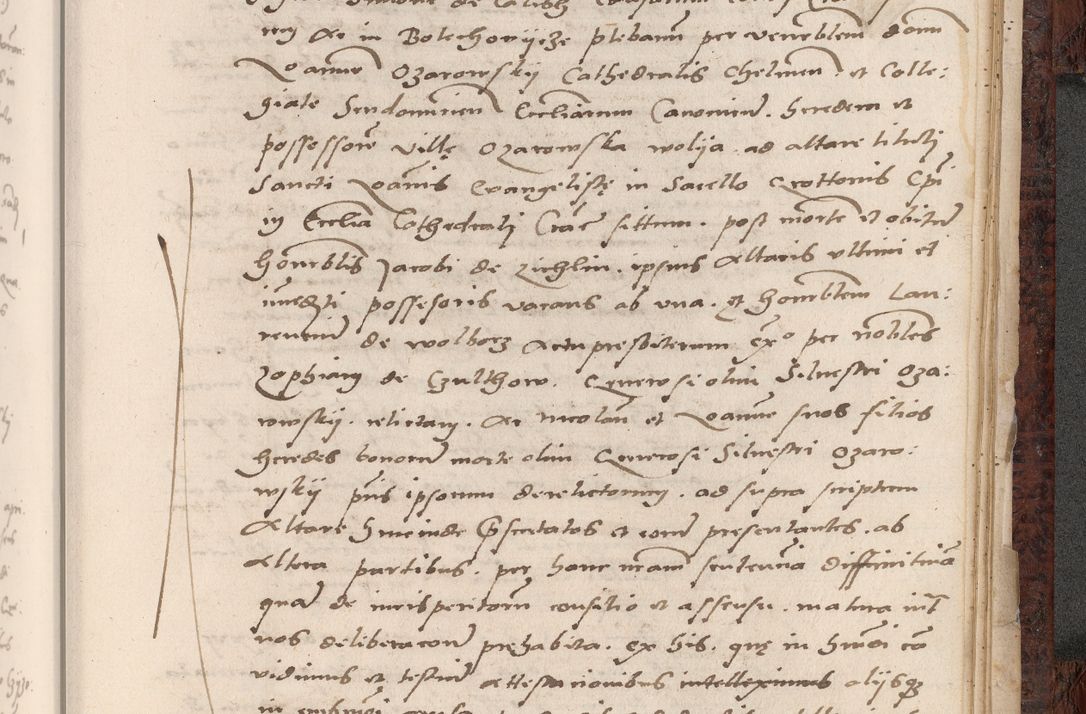 ny Ac in Bolechowycze plebanum per venerblem domi
Joannem Ozarowskij Cathedralis Chelmen. et Colle:
giate Sendomirien Eccliarum Canonicum. heredem et
possessorē Villę Ozarowska wolija ad altare tituli
Sancti Joānis Evangelistę in Sacello Crottonis Epi
in Ecclia Cathedrali Crac sittum. post mortē et obitum
honorblis Jacobi de zichlin. ipsius Altaris ultimi et
imedti possessoris vacans ab una. et honorblem Lau:
rentium de wolborz Actu presbiterum exº per nobles
Zophiam de Czulthow. Generosi olim Silvestri Oza:
rowskij. relictam. Ac Nicolaum et Joannem suos filios
heredes bonorum morte olim Generosi Silvestri Ozaro:
wskij pris ipsorum derelictorum. ad supra scriptum
Altare huicinde Pīsentatos et eorum presentantes. ab
altera partibus. per hanc nrām sententia diffinitiva
quam de iurisperitorum consilio et assensu. matura int
nos deliberacone prehabita. ex his. quę in huiōi cō
vidimus et testium Attestacionibus intelleximus alijsqz